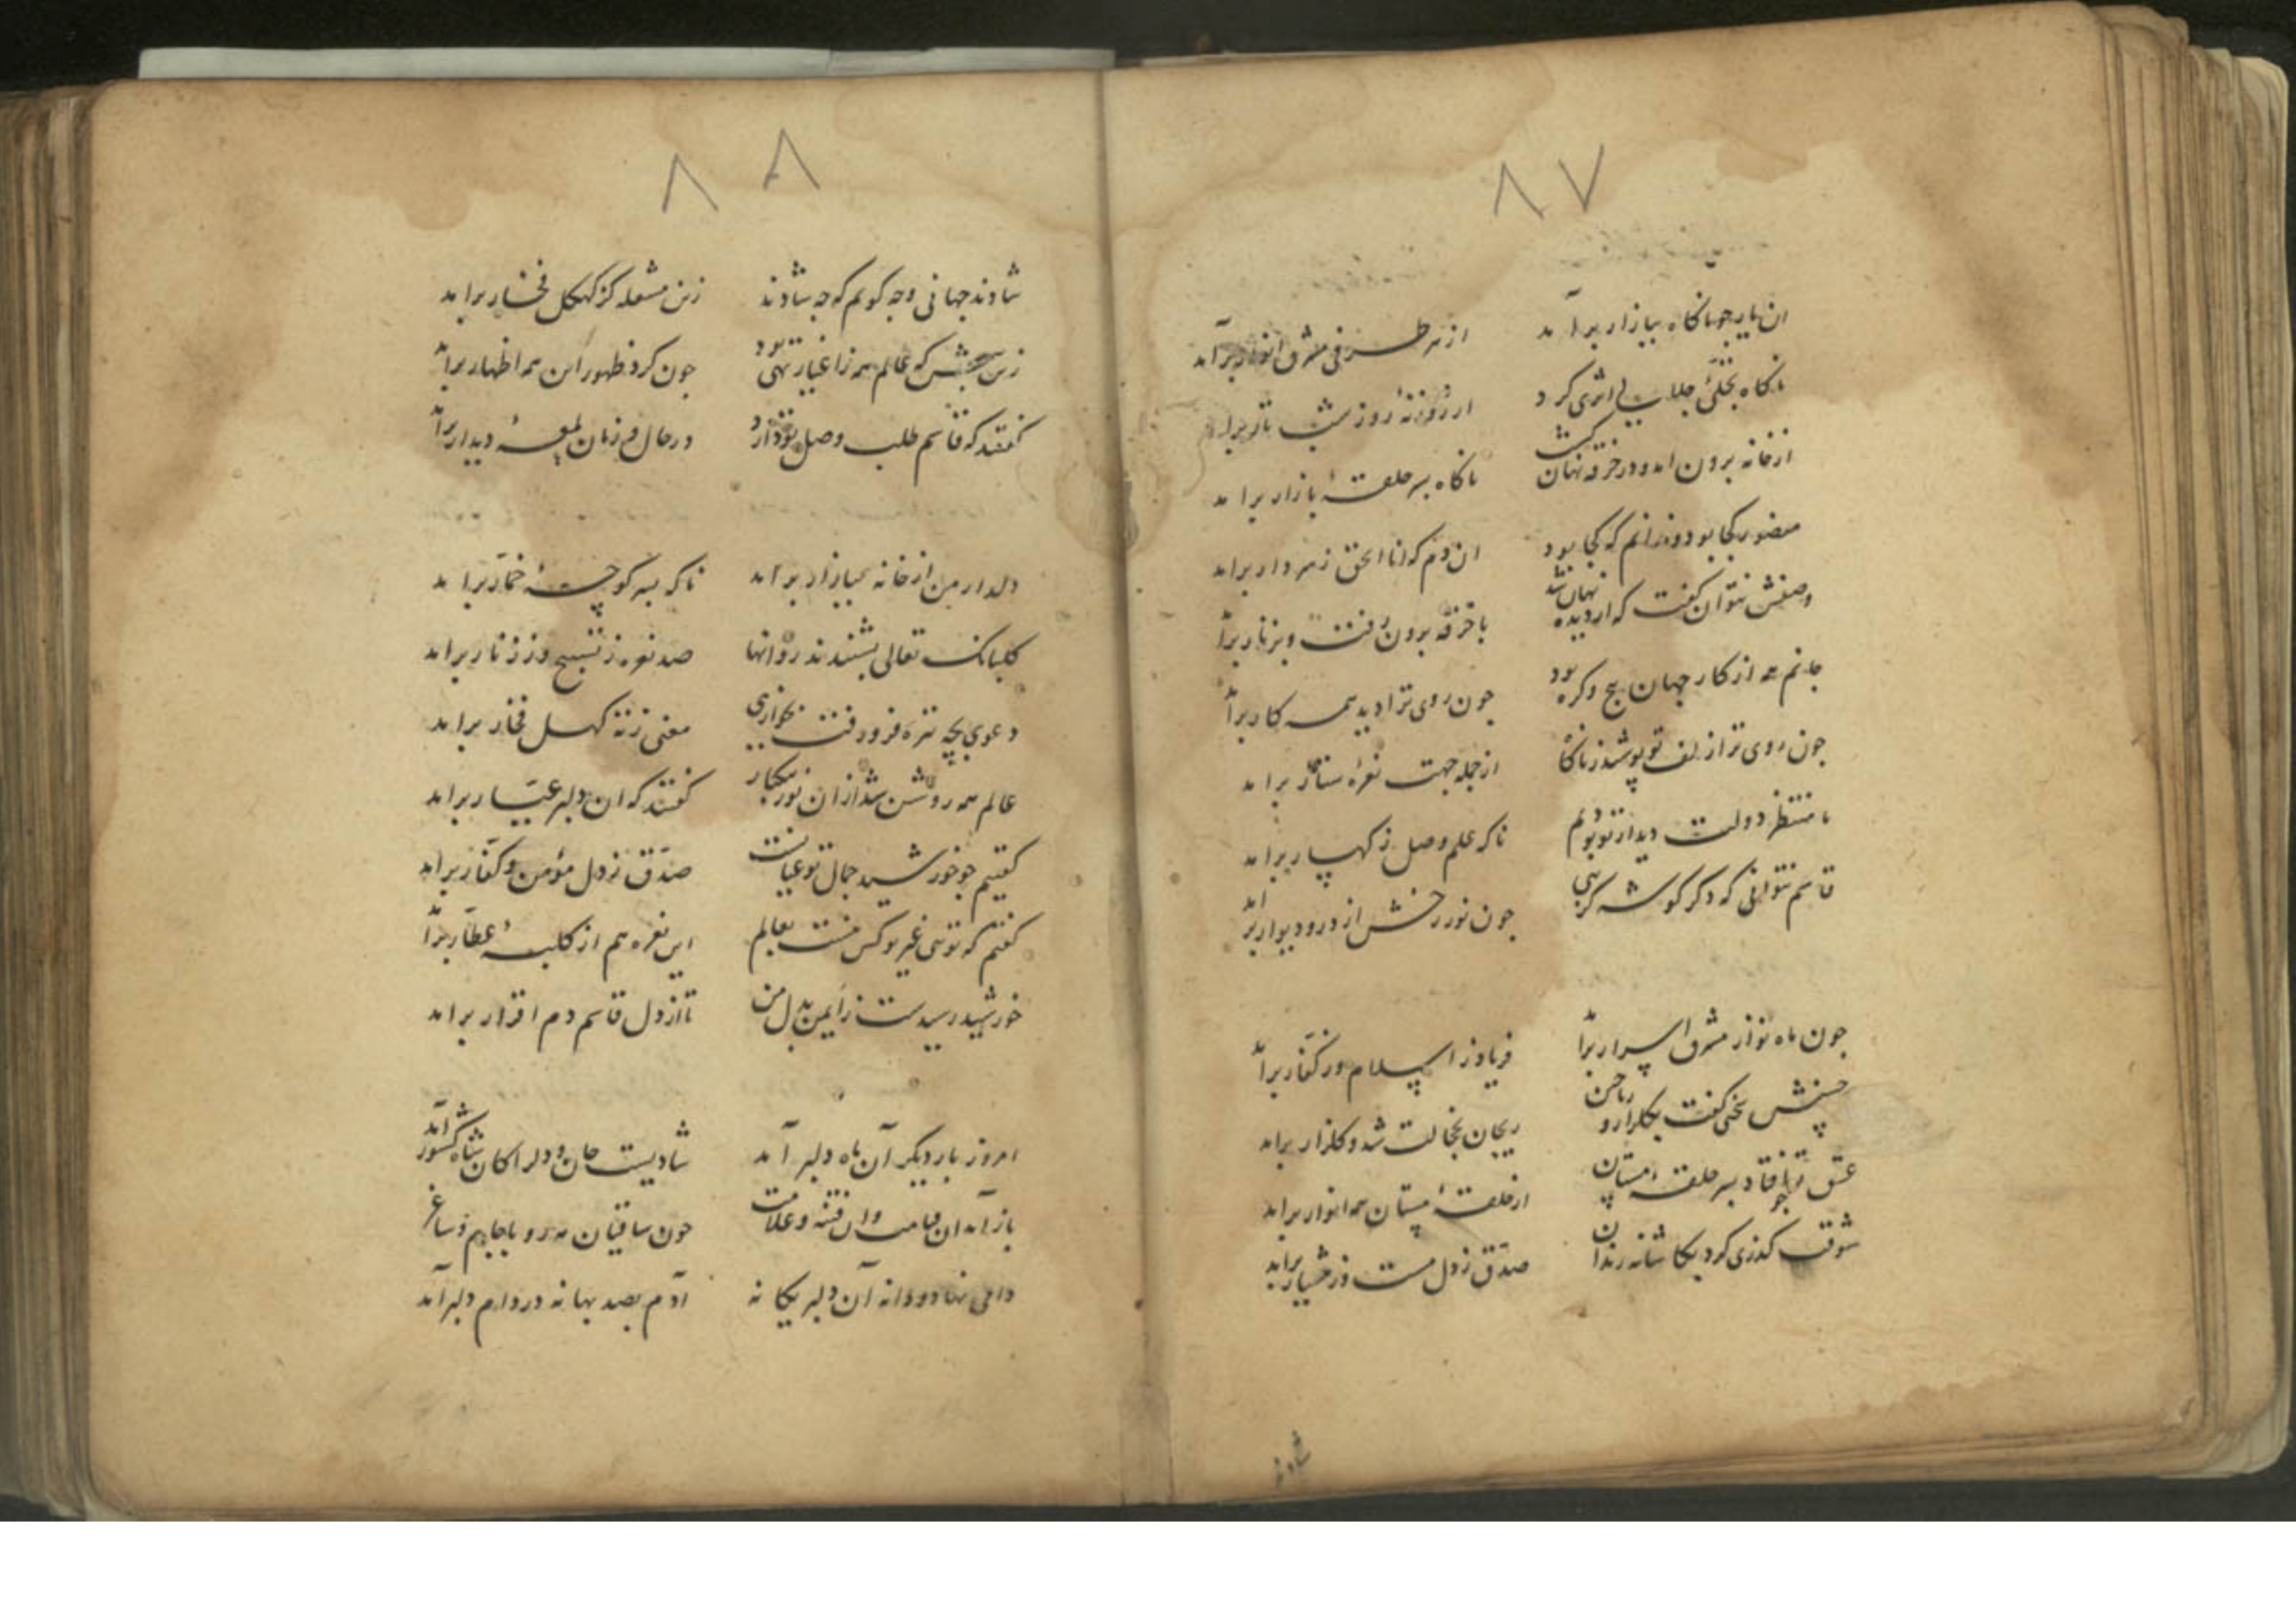 ۸۷
ان یار جو ناکاه ببازار برآمد
از هر طرفی مشرق انوار برآمد
ناکاه تجلئ جلالت اثری کرد
از خانه برون امد و در خرقه نهان کشت
ناکاه بسر حلقهٔ بازار برامد
منصور کجا بود و ندانم که کجا بود
ان دم که انا الحق ز سر دار برامد
وصفش نتوان کفت که از دیده نهان شد
با خرقه برون رفت و بزنار برآمد
جانم همه از کار جهان هیچ و کره بود
جون روی ترا دید همه کار برآمد
جون روی ترا زلف تو پوشید ز ناکاه
از جمله جهت نعرهٔ ستار برامد
ما منتظر دولت دیدار تو بودیم
ناکه علم وصل ز کهسار برامد
قاسم نتوانی که دکر کوشه کزینی
جون نور رخش از در و دیوار برامد
جون ماه نو از مشرق اسرار برآمد
فریاد ز اسلام و ز کفار برآمد
حسنش سخنی کفت بکلزار و ریاحین
ریحان بخجالت شد و کلزار برامد
عشق تو جو افتاد بسر حلقهٔ مستان
از حلقهٔ مستان همه انوار برامد
شوقت کذری کرد بکاشانه رندان
صدق ز دل مست و ز هشیار برامد
شادند
۸۸
شادند جهانی و جه کویم که جه شادند
زین مشعله کز کهکل فخار برامد
زین بیش که عالم همه ز اغیار تهی بود
جون کرد ظهور این همه اظهار برآمد
کفتند که قاسم طلب وصل تو دارد
در حال و زمان لمعهٔ دیدار برآمد
دلدار من از خانه ببازار برامد
ناکه بسر کوچهٔ خمار برامد
کلبانک تعالی بشنیدند روانها
صد نعره ز تسبیح و ز زنار برامد
معنی ز ته کهکل فخار برامد
عالم همه روشن شد از ان نور بیکبار
کفتند که ان دلبر عیار برامد
کفتیم جو خورشید جمال تو عیانست
صدق ز دل مؤمن و کفار برامد
کفتم که توئی غیر تو کس نیست بعالم
این نعره هم از کلبهٔ عطار برآمد
خورشید رسیدست ز ایمن بدل من
تا از دل قاسم دم اقرار برامد
امروز بار دیکر آن ماه دلبر آمد
شادیست جان و دل را کان شاه کشور آمد
باز آمد ان قیامت وان فتنه و علامت
جون ساقیان مهرو با جام و ساغر
دامی نهاد و دانه آن دلبر یکانه
آدم بصد بهانه در دام دلبر آمد